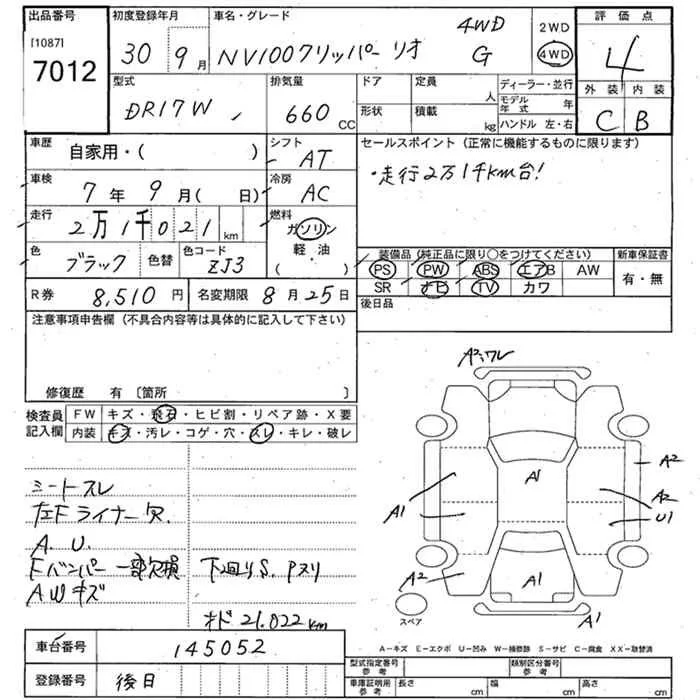 出品番号 初度登録年月 車名・グレード 評価点
[1087] 7012
30年 9月 NV100クリッパー リオ 4WD G
2WD 4WD
4
外装 内装
C B
型式 排気量 ドア 定員 ディーラー・並行
DR17W 660 CC 人 モデル年式 年
形状 積載 kg ハンドル 左・右
車歴 自家用・( ) シフト AT
セールスポイント(正常に機能するものに限ります)
・走行2万1千km台!
車検 7年 9月( 日) 冷房 AC
走行 2万1千021km 燃料 ガソリン 軽・油 ( )
色 ブラック 色替 色コード ZJ3
装備品(純正品に限り○をつけてください) 新車保証書
PS PW ABS エアB AW 有・無
SR ナビ TV カワ
R券 8,510円 名変期限 8月25日
後日品
注意事項申告欄(不具合内容等は具体的に記入して下さい)
修復歴 有〔箇所 〕
検査員記入欄 FW キズ・飛石・ヒビ割・リペア跡・X要
内装 キズ・汚レ・コゲ・穴・スレ・キレ・破レ
シートスレ
左Fライナー欠.
A. U.
Fバンパー 一部欠損 下廻りS. Pヌリ
AWキズ
オド 21.022km
A2.ワレ
A1
A2
A1
A2
U1
A2
A1
A1
スペア
A−キズ E−エクボ U−凹み W−補修跡 S−サビ C−腐食 XX−取替済
車台番号 145052
登録番号 後日
型式指定番号 参考 類別区分番号 参考
車庫証明用 参考 長さ cm 幅 cm 高さ cm